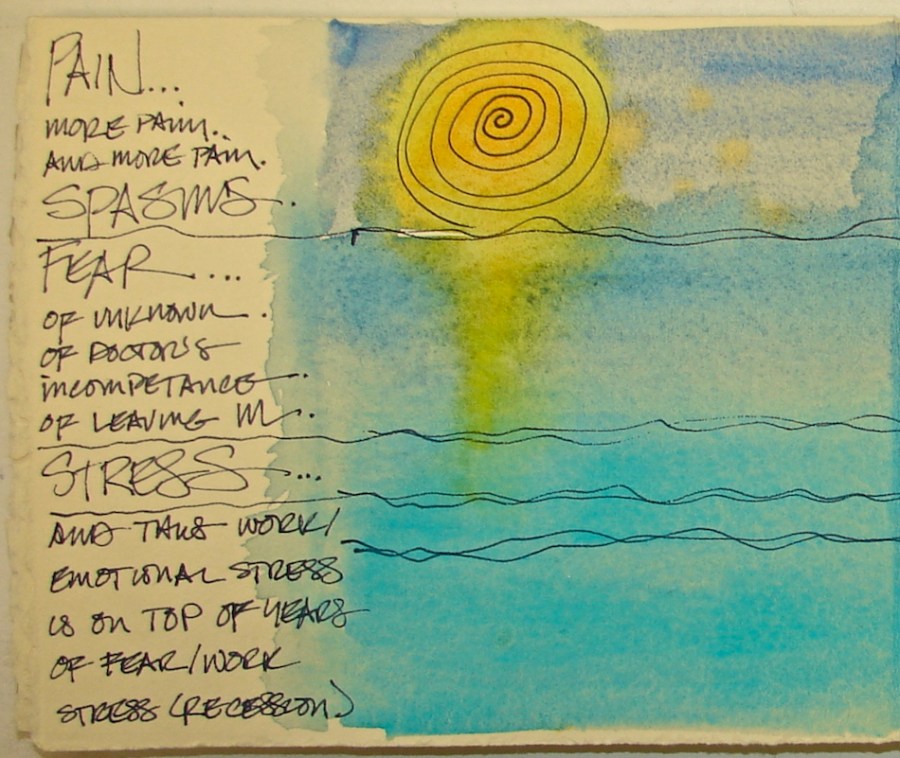 PAIN...
MORE PAIN..
AND MORE PAIN.
SPASMS.
FEAR....
OF UNKNOWN.
OF DOCTOR'S
INCOMPETANCE.
OF LEAVING M.
STRESS...
AND THIS WORK/
EMOTIONAL STRESS
IS ON TOP OF YEARS
OF FEAR/WORK
STRESS (RECESSION.)